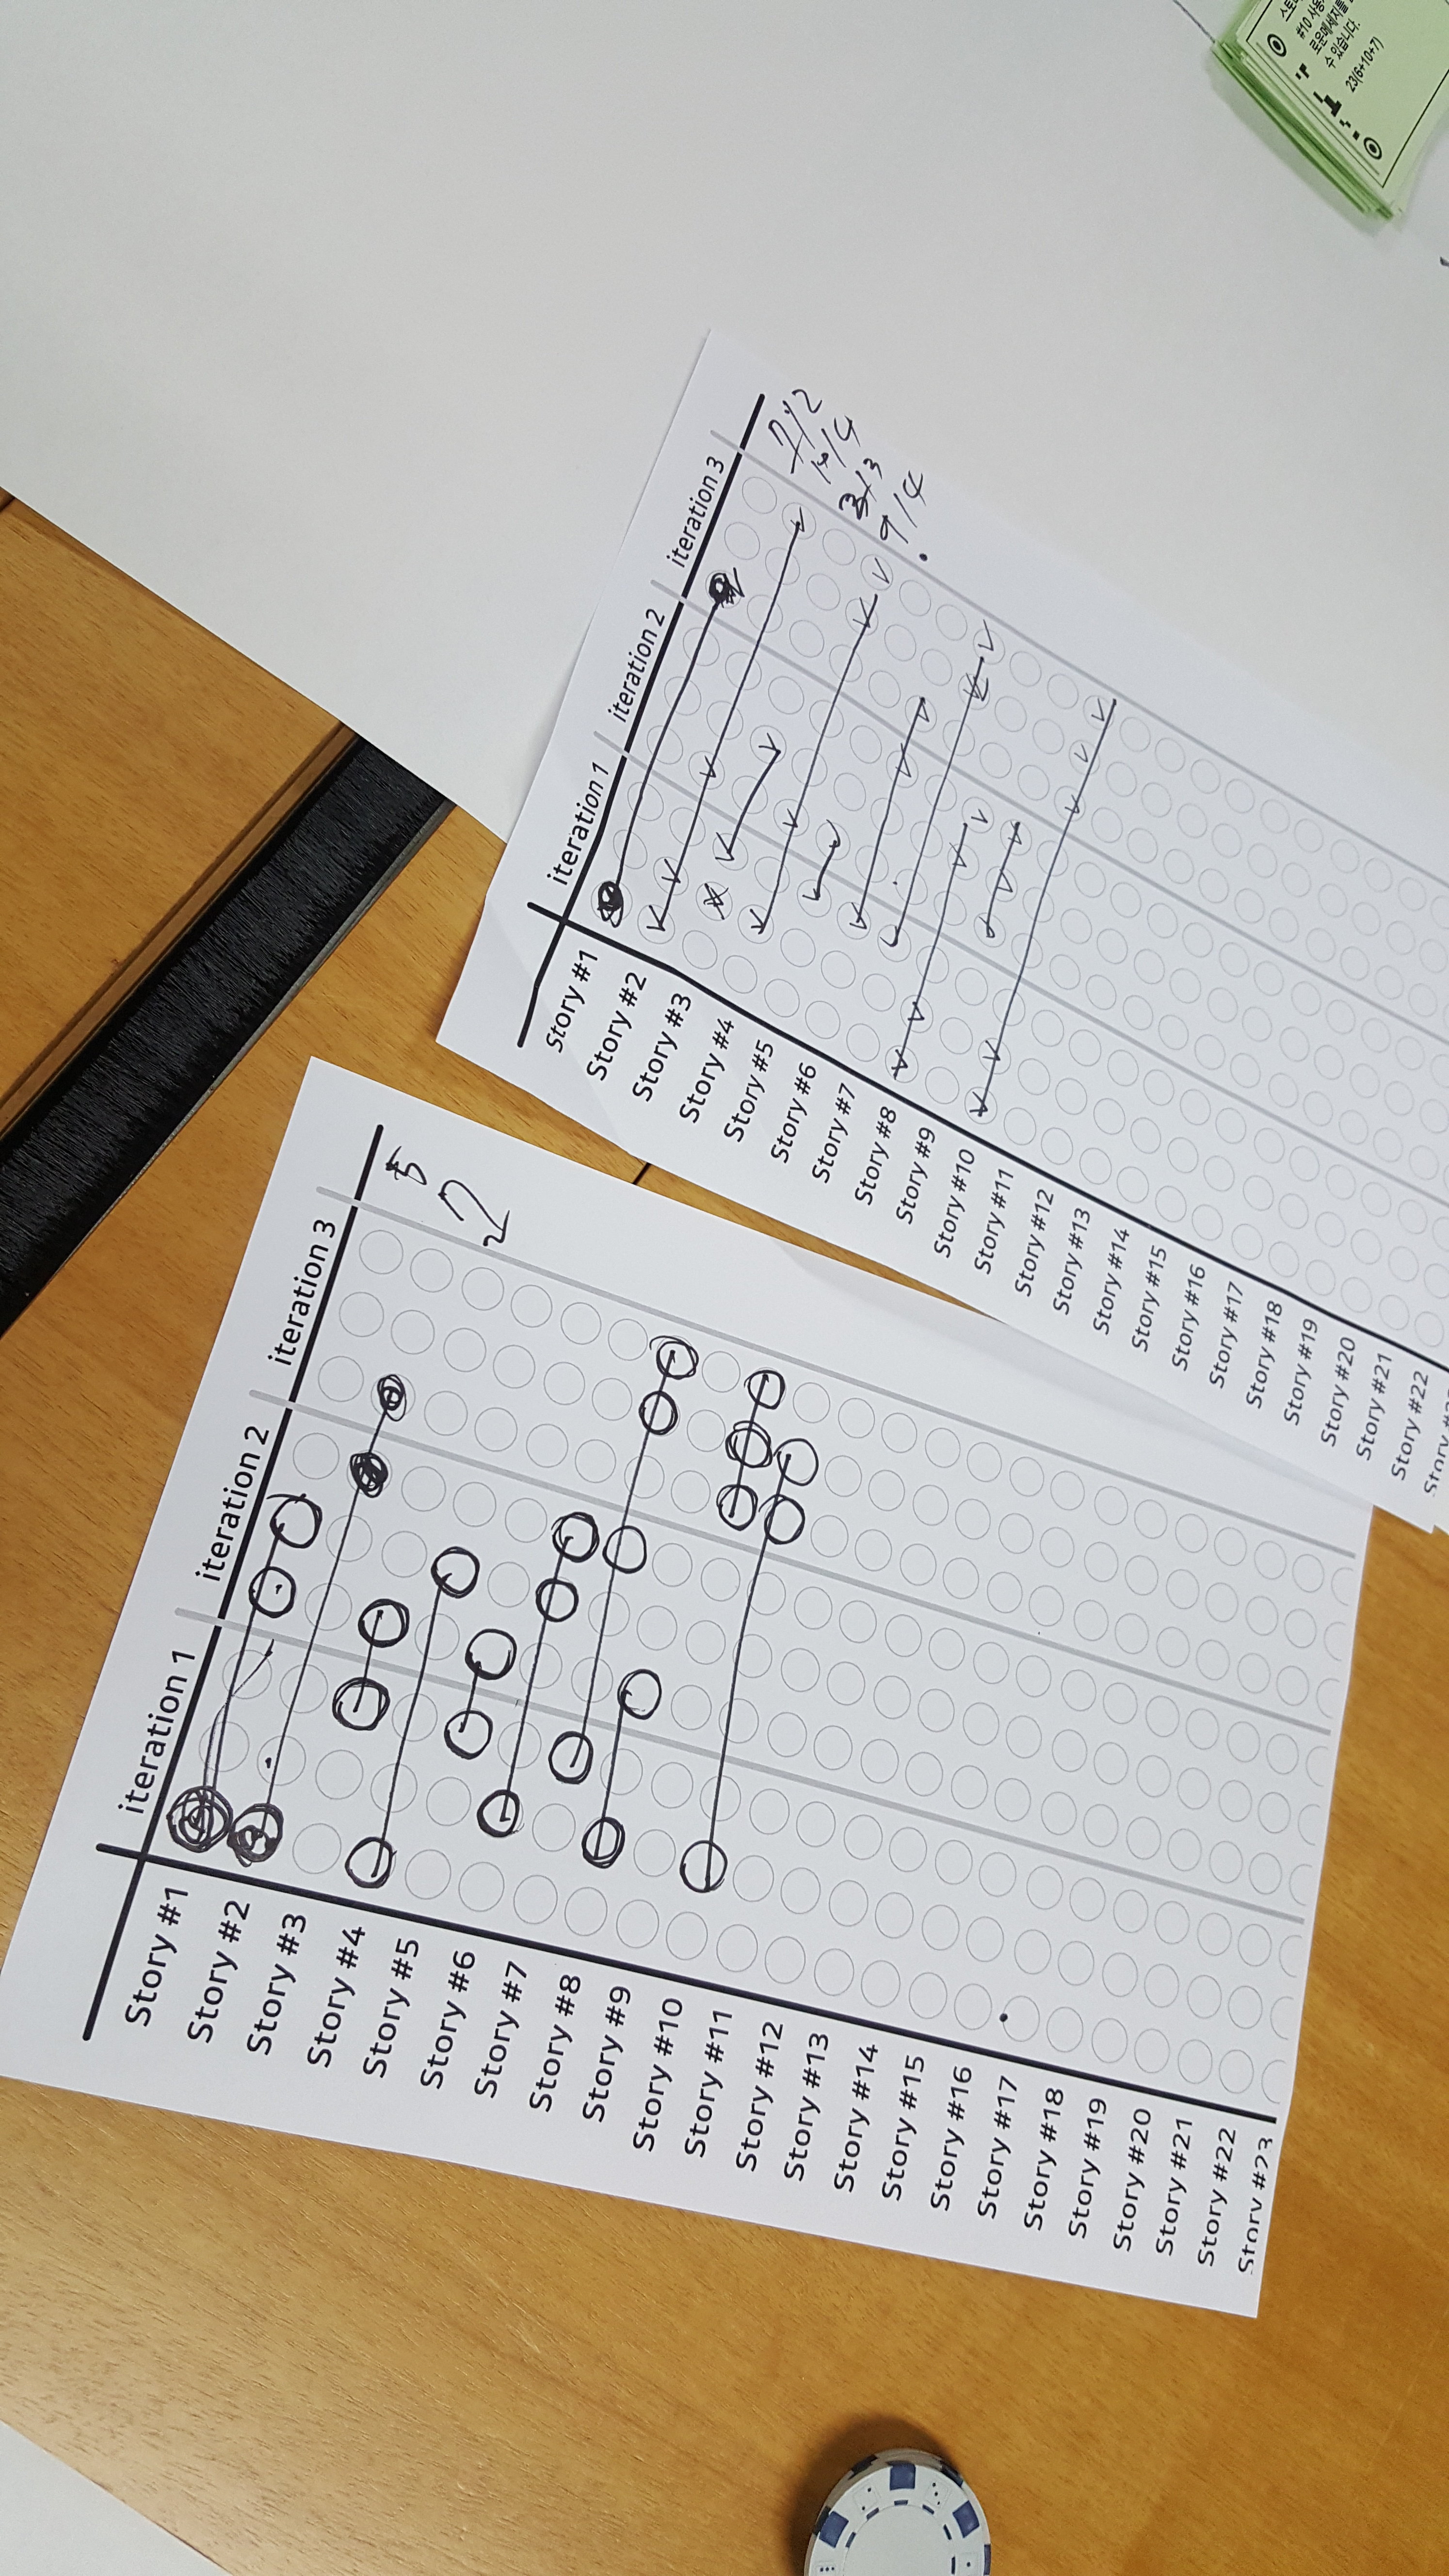 스토리
#10 사용
로운메세지를
수 있습니다.
23(6+10+7)
iteration 1
iteration 2
iteration 3
Story #1
Story #2
Story #3
Story #4
Story #5
Story #6
Story #7
Story #8
Story #9
Story #10
Story #11
Story #12
Story #13
Story #14
Story #15
Story #16
Story #17
Story #18
Story #19
Story #20
Story #21
Story #22
9/4
iteration 1
iteration 2
iteration 3
Story #1
Story #2
Story #3
Story #4
Story #5
Story #6
Story #7
Story #8
Story #9
Story #10
Story #11
Story #12
Story #13
Story #14
Story #15
Story #16
Story #17
Story #18
Story #19
Story #20
Story #21
Story #22
Story #23